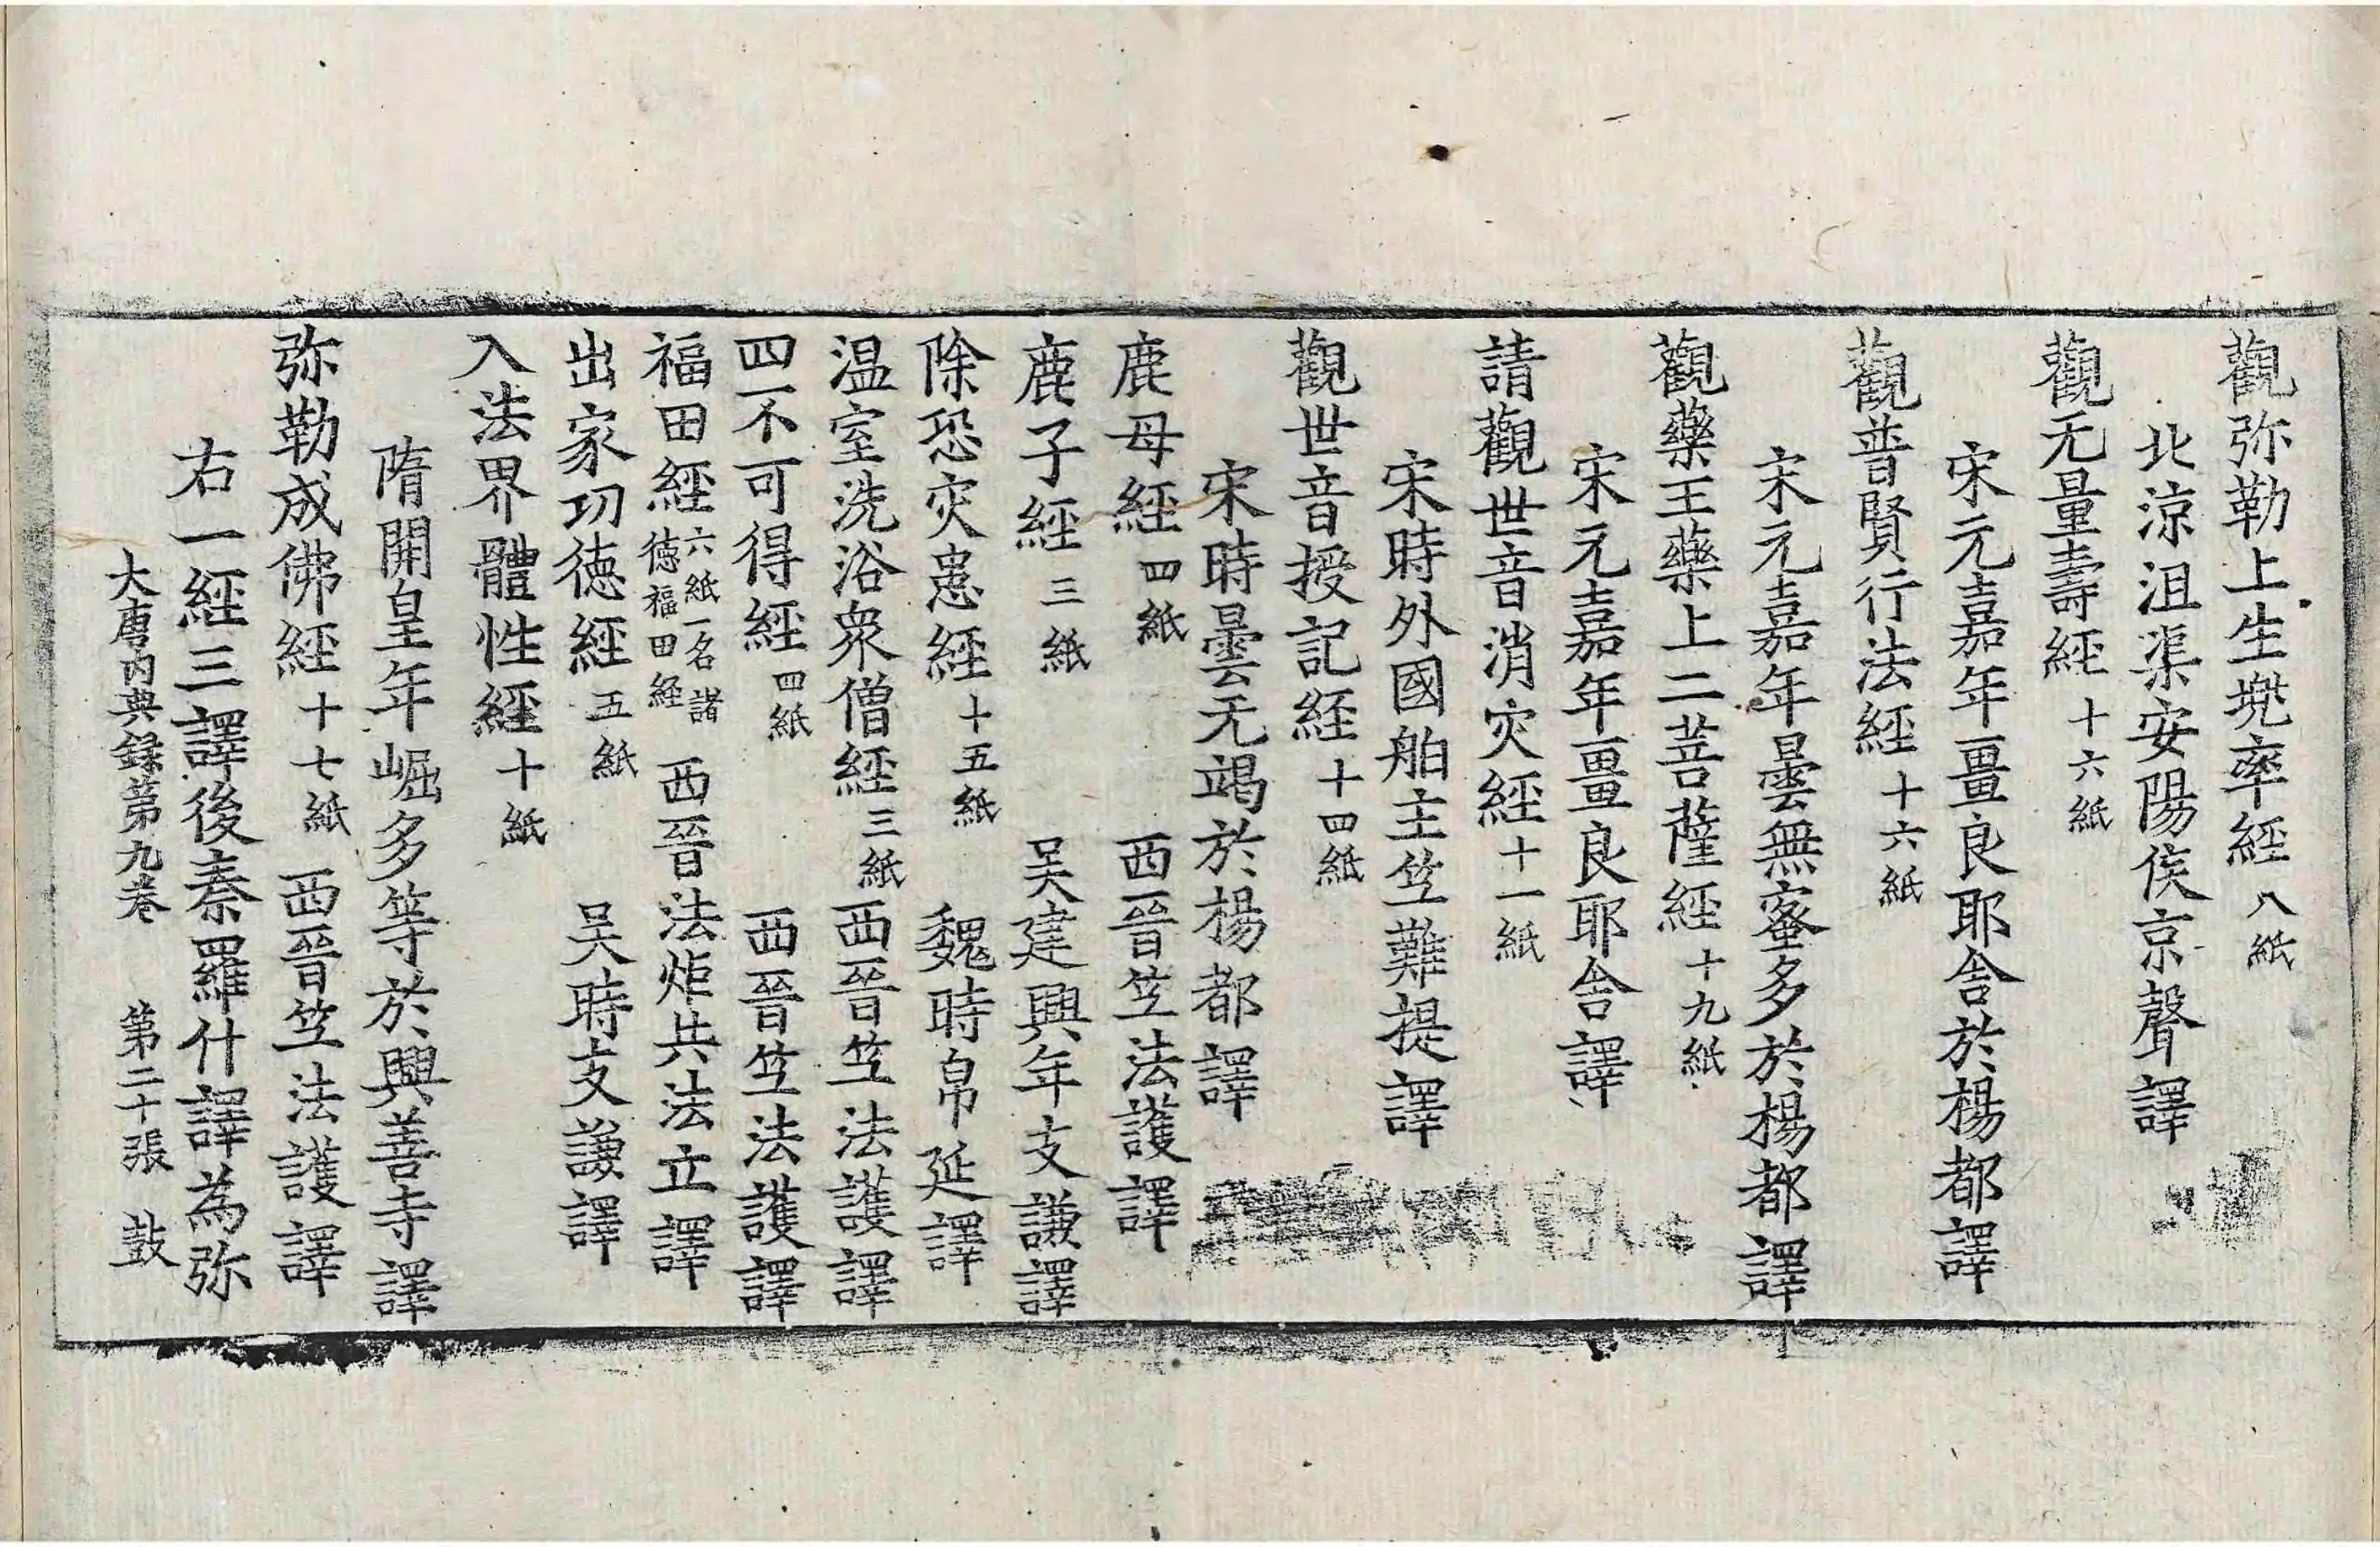 觀弥勒上生兜率經八紙
北涼沮渠安陽侯京聲譯
觀无量壽經十六紙
宋元嘉年畺良耶舍於楊都譯
觀普賢行法經十六紙
宋元嘉年曇無蜜多於楊都譯
觀藥王藥上二菩薩經十九紙
宋元嘉年畺良耶舍譯
請觀世音消灾經十一紙
宋時外國舶主竺難提譯
觀世音授記經十四紙
宋時曇无竭於楊都譯
鹿母經四紙 西晉竺法護譯
鹿子經三紙 吴建興年支謙譯
除恐灾患經十五紙 魏時帛延譯
温室洗浴衆僧經三紙 西晉竺法護譯
四不可得經四紙 西晉竺法護譯
福田經六紙一名諸德福田經 西晉法炬共法立譯
出家功德經五紙 吴時支謙譯
入法界體性經十紙
隋開皇年崛多等於興善寺譯
弥勒成佛經十七紙 西晉竺法護譯
右一經三譯後秦羅什譯為弥
大唐内典録苐九卷 第二十張 鼓